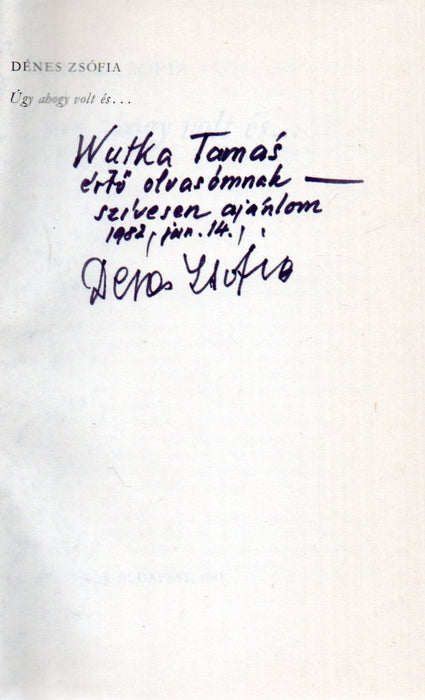 DÉNES ZSÓFIA
Úgy ahogy volt és...
Wutka Tamás
értő olvasómnak —
szívesen ajánlom
1982, jun. 14.,
Dénes Zsófia